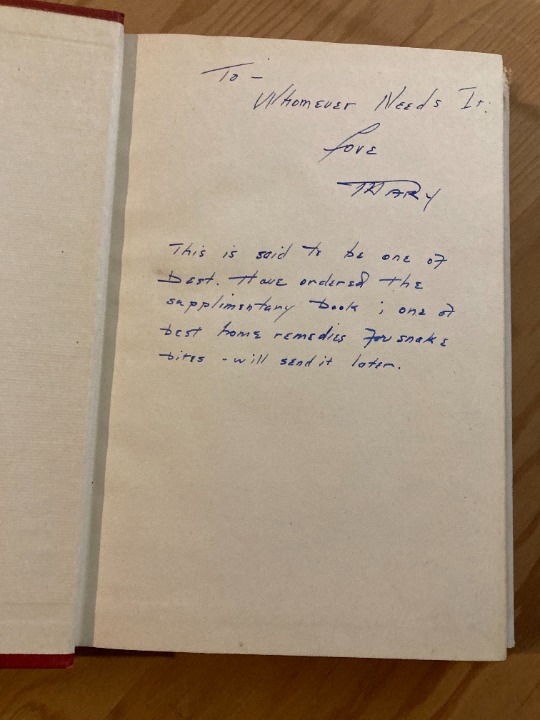 To -
Whomever Needs It:
Love
Mary
This is said to be one of
best. Have ordered the
supplimentary book ; one of
best home remedies for snake
bites - will send it later.